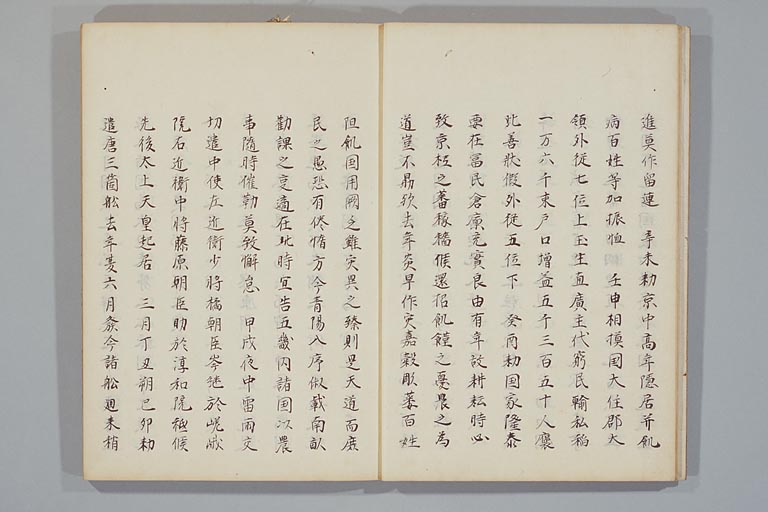 進莫作留連辛未勅京中高年隠居并飢
病百姓等加振恤壬申相摸国大住郡大
領外従七位上壬生直廣主代窮民輸私稲
一万六千束戸口増益五千三百五十人褒
此善状假外従五位下癸酉勅国家隆泰
要在富民倉廩充實良由有年故耕耘時必
致京柩之蕃稼穡候還招飢饉之憂農之為
道豈不勗歟去年炎旱作灾嘉穀彫萎百姓
阻飢国用闕乏雖灾異之臻則是天道而庶
民之愚恐有倦惰方今青陽入序俶載南畝
勧課之冝適在此時冝告五畿内諸国以農
事隨時催勤莫致懈怠甲戌夜中雷雨交
切遣中使左近衛少将橘朝臣岑継於嵯峨
院右近衛中将藤原朝臣助於淳和院祗候
先後太上天皇起居三月丁丑朔己卯勅
遣唐三箇舩去年夏六月發今諸舩廻来稍